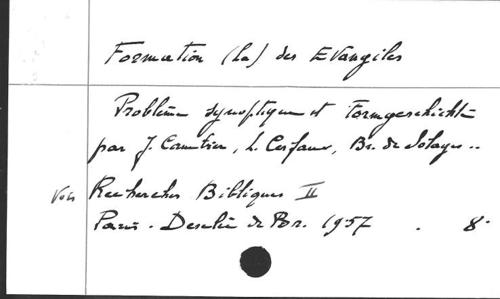 Formation (La) des Evangiles
Problème synoptique et Formgeschichte
par J. Cambier, L. Cerfaux, Br. de Solages..
Voir Recherches Bibliques II
Paris - Desclée de Br. 1957 . 8°